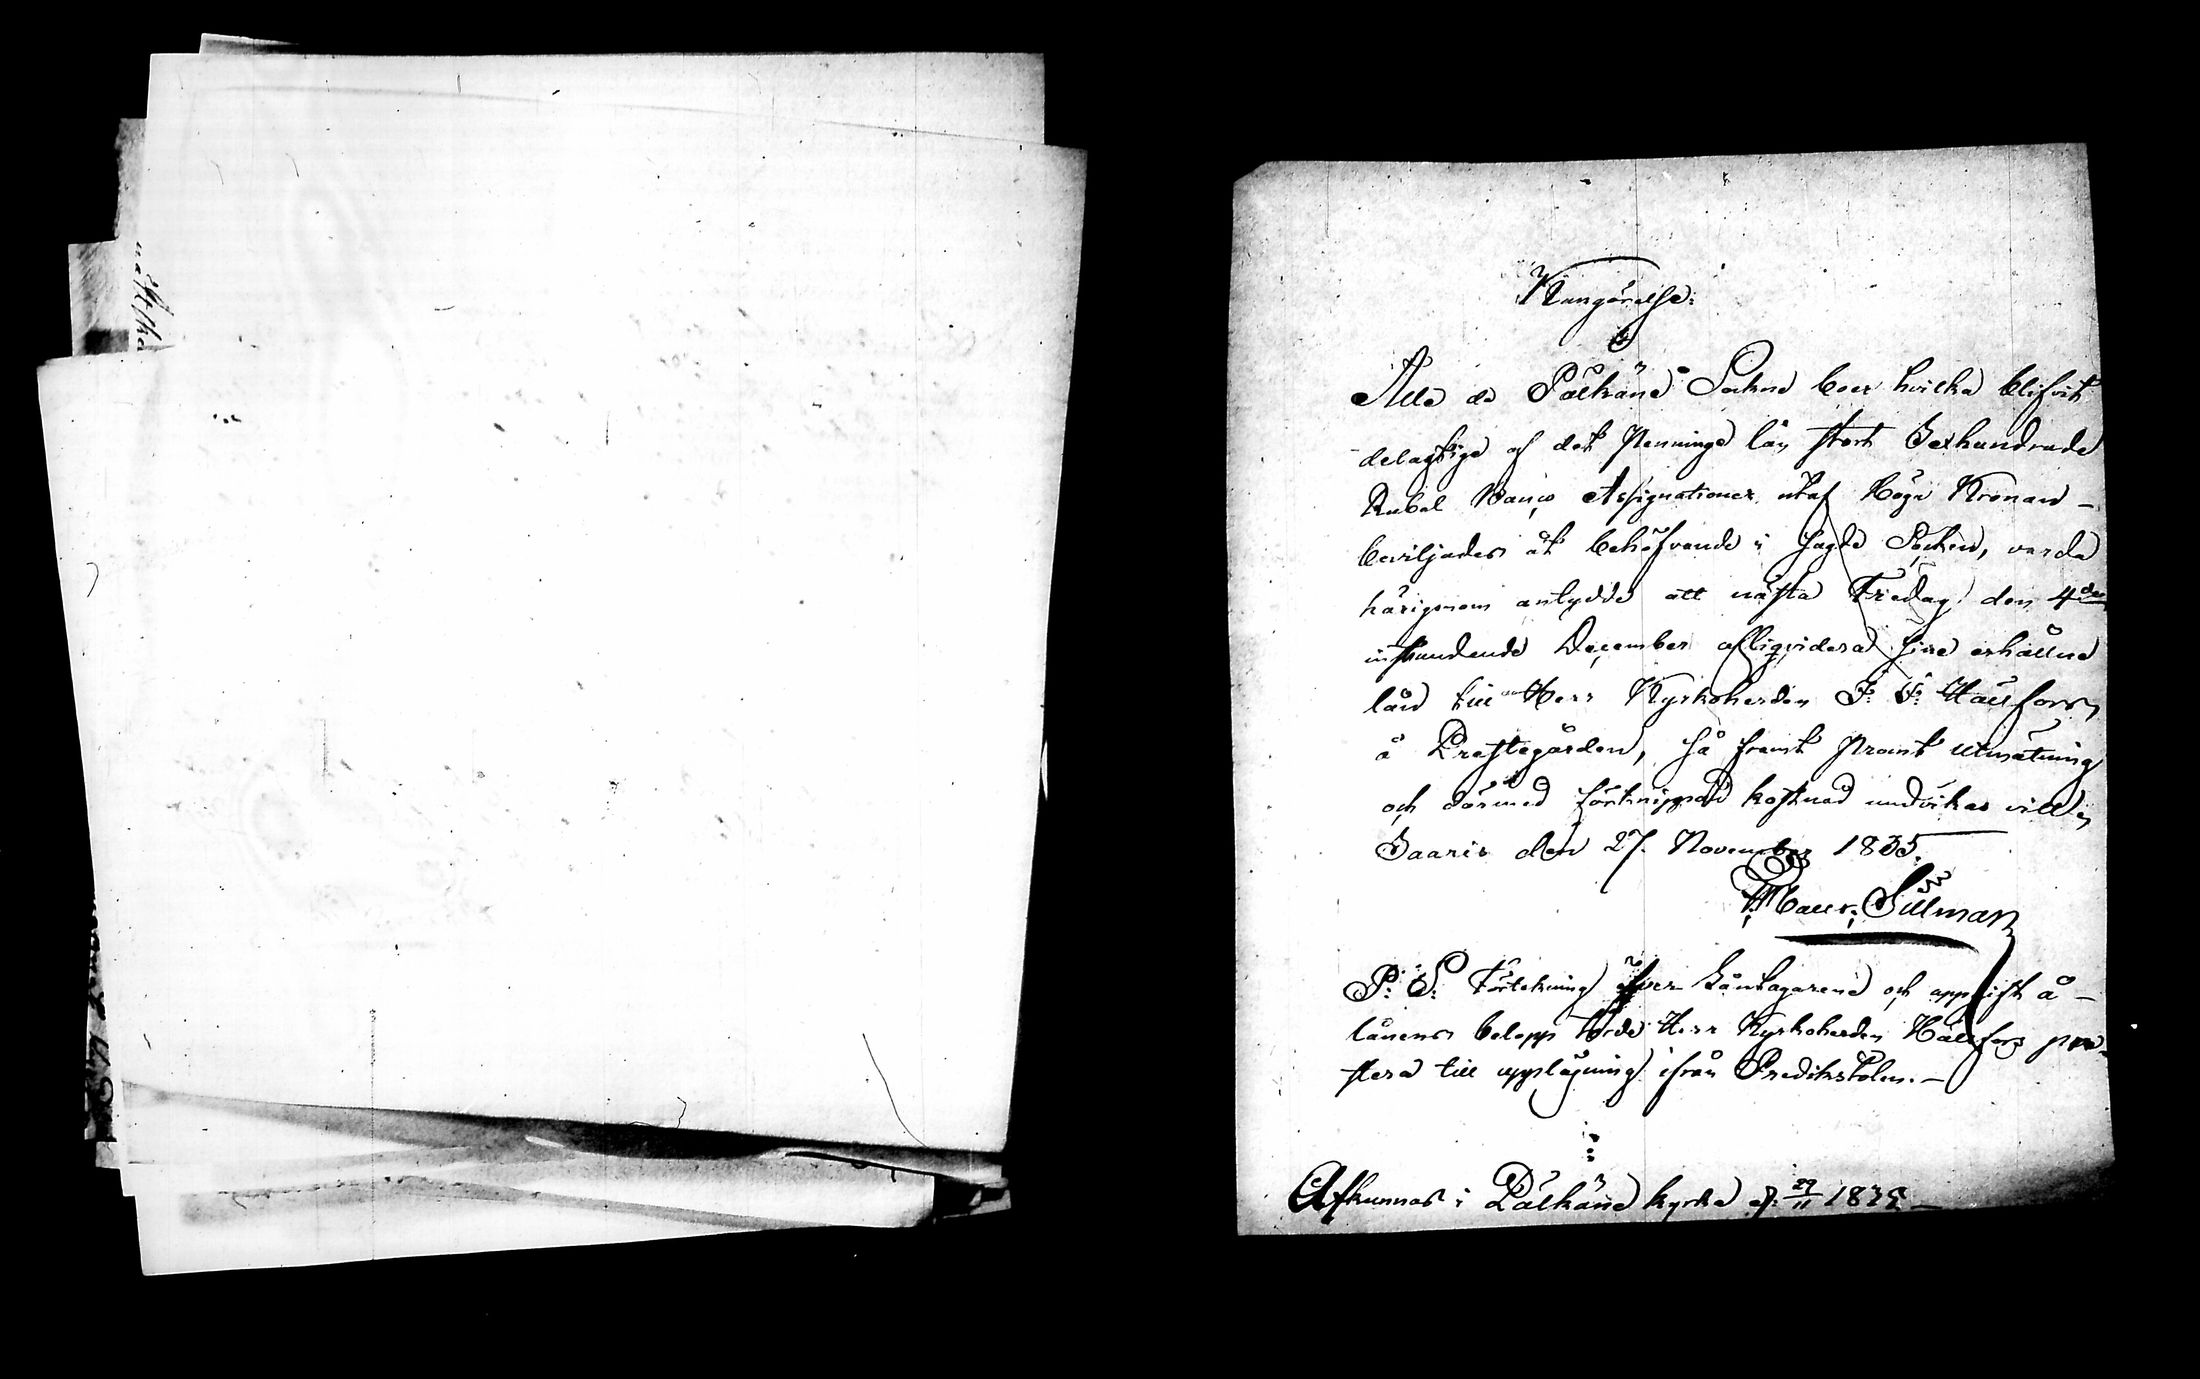 Kungörelse:
Alle de Pälkäne Sockne boer hvilka blifvit
delagtige af det Penninge lån stort Sexhundrade
Rubel Banco Assignationer utaf Höga Kronan –
beviljades åt behöfvande i sagde Socken, varda
härigenom antydde att nästa Fredag den 4de
instundende December afliqvidera sine erhållne
lån till Herr Kyrkoherden F: F: Hällfors,
å Prestegården, så framt Promt utmätning
och därmed förknippad kostnad undvikas vill,
Saaris den 27. November 1835.
Maur: Silman
P: S: Förtekning öfver Låntagarene och uppgift å –
lånens belopp torde Herr Kyrkoherden Hällfors pre-
stera till uppläsning ifrån Predikstolen. –
Afkunnas i Pälkäne kyrka d: 29/11 1835 –